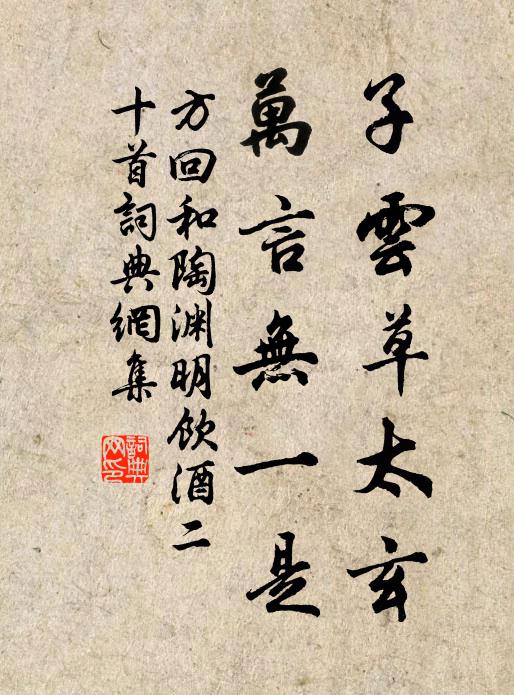 子雲草太玄
萬言無一是
方回和陶渊明飲酒二
十首詞典網集
詞典网印